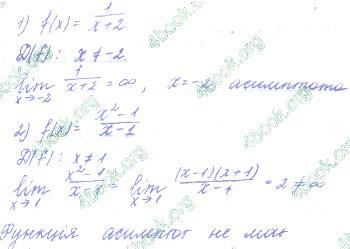 1) f(x) = 1/(x+2)
D(f): x ≠ -2.
lim x→-2 1/(x+2) = ∞, x = -2 асимптота
2) f(x) = (x²-1)/(x-1)
D(f): x ≠ 1
lim x→1 (x²-1)/(x-1) = lim x→1 (x-1)(x+1)/(x-1) = 2 ≠ ∞
Функція асимптот не має